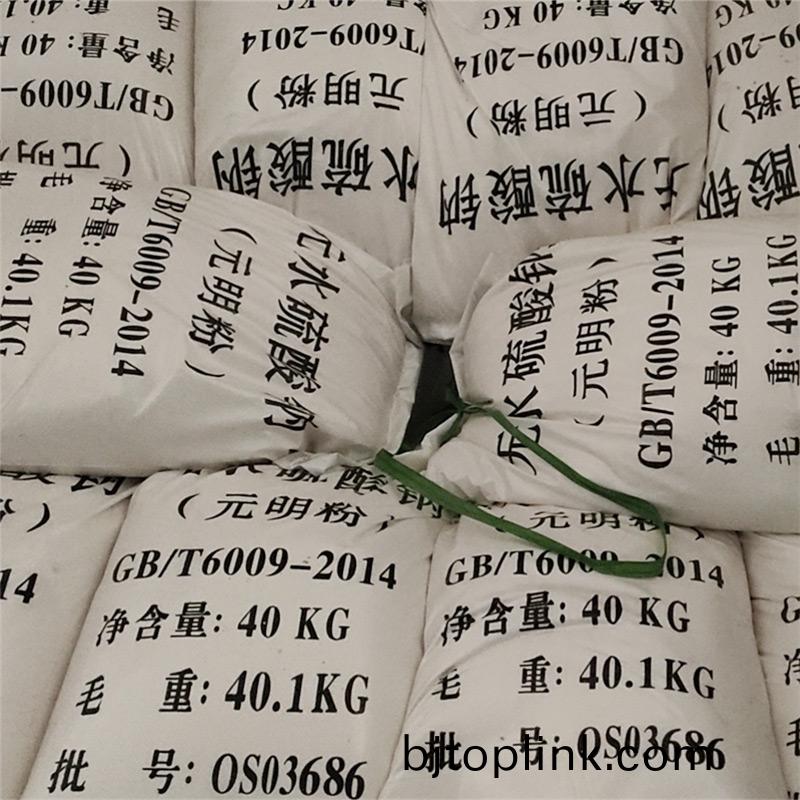 毛 重: 40.1
净含量: 40 KG
GB/T6009-2014
(元明粉)
净含量: 40 KG
GB/T6009-2014
(元明粉)
水硫酸钠
净含量: 40 KG
GB/T6009-2014
(元明粉)
无水硫酸钠
GB/T6009-2014
(元明粉)
硫酸钠
无水硫酸钠
(元明粉)
GB/T6009-2014
净含量: 40 KG
毛 重: 40.1KG
无水硫酸钠
(元明粉)
GB/T6009-2014
净含量: 40 KG
毛 重: 40.1KG
钠
粉)
14
水硫酸钠
(元明粉)
GB/T6009-2014
净含量: 40 KG
毛 重: 40.1KG
批 号: OS03686
(元明粉)
GB/T6009-2014
净含量: 40 KG
毛 重: 40.1KG
批 号: OS03686
bjtoplink.com